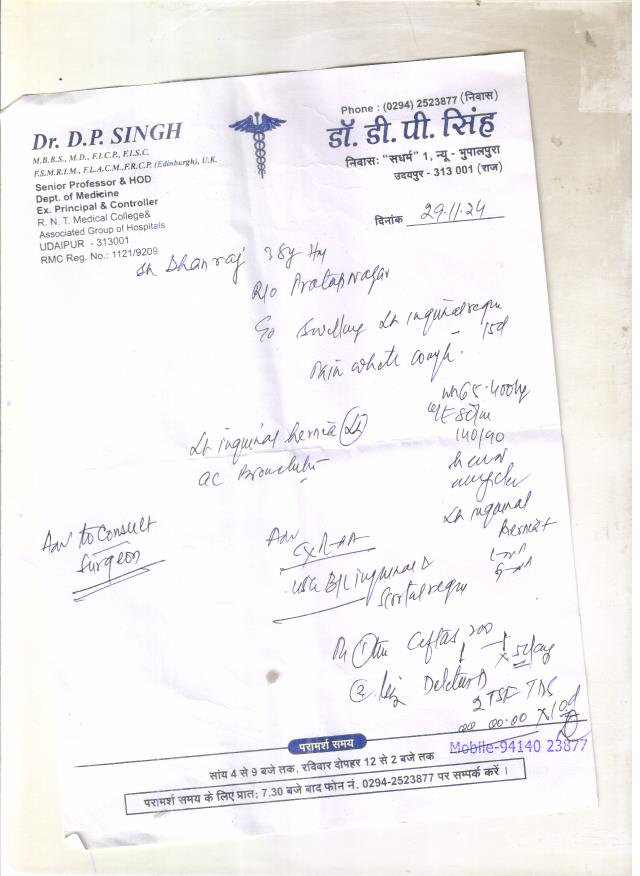 Phone : (0294) 2523877 (निवास)
Dr. D.P. SINGH
डॉ. डी. पी. सिंह
M.B.B.S., M.D., F.I.C.P., F.I.S.C.
F.S.M.R.I.M., F.L.A.C.M.,F.R.C.P. (Edinburgh), U.K.
निवास: "सधर्म" 1, न्यू - भुपालपुरा
उदयपुर - 313 001 (राज)
Senior Professor & HOD
Dept. of Medicine
Ex. Principal & Controller
R. N. T. Medical College&
Associated Group of Hospitals
UDAIPUR - 313001
RMC Reg. No.: 1121/9209
दिनांक 29.11.24
Sh Dhanraj 38y
R/o Pratapnagar
Swelling Lt inguinal region
15d
Pain while cough.
Wt 65.400kg
140/90
Lt inguinal hernia
AC Bronchitis
Lt inguinal
Hernia+
Adv to Consult
Surgeon
Adv
USG B/L inguinal &
Scrotal region
Ceftas 200
x 5day
Deletus D
2 TSF TDS
x 10d
परामर्श समय
Mobile-94140 23877
सांय 4 से 9 बजे तक, रविवार दोपहर 12 से 2 बजे तक
परामर्श समय के लिए प्रात: 7.30 बजे बाद फोन नं. 0294-2523877 पर सम्पर्क करें ।